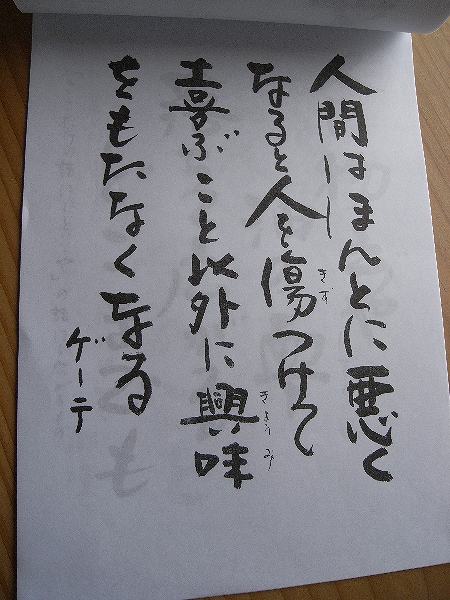 人間はほんとに悪く
なると人を傷つけて
きず
喜ぶこと以外に興味
きょうみ
をもたなくなる
ゲーテ